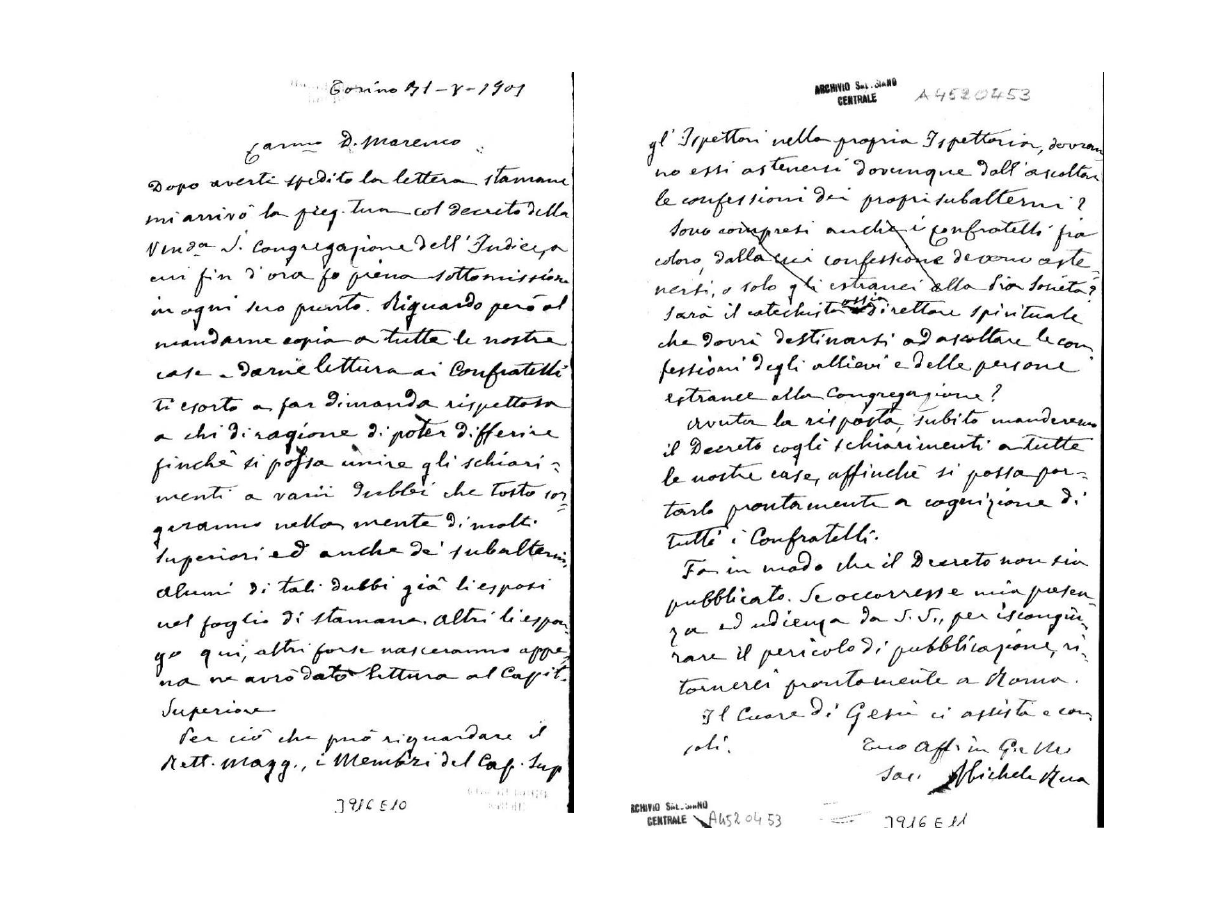 Torino 31-V-1901
Carmo D. Marenco
Dopo averti spedito la lettera stamane
mi arrivò la preg. tua col decreto della
Venda S. Congregazione dell'Indice, a
cui fin d'ora fo piena sottomissione
in ogni suo punto. Riguardo però al
mandarne copia a tutte le nostre
case e darne lettura ai Confratelli
ti esorto a far dimanda rispettosa
a chi di ragione di poter differire
finchè si possa unire gli schiari=
menti a varii dubbi che tosto sor=
geranno nella mente di molti
Superiori ed anche de' subalterni,
Alcuni di tali dubbi già li esposi
nel foglio di stamane. Altri li espon=
go qui, altri forse nasceranno appe=
na ne avrò dato lettura al Capit.
Superiore
Per ciò che può riguardare il
Rett. Magg., i Membri del Cap. Sup
J916 E10
ARCHIVIO SALESIANO
CENTRALE
A4520453
gl'Ispettori nella propria Ispettoria, dovran
no essi astenersi dovunque dall'ascoltar
le confessioni dei propri subalterni?
Sono compresi anche i Confratelli fra
coloro, dalla cui confessione devono aste=
nersi, o solo gli estranei alla Pia Società?
Sarà il catechista ossia direttore spirituale
che dovrà destinarsi ad ascoltare le con
fessioni degli allievi e delle persone
estranee alla Congregazione?
Avuta la risposta, subito manderemo
il Decreto cogli schiarimenti a tutte
le nostre case, affinchè si possa por=
tarlo prontamente a cognizione di
tutti i Confratelli.
Fa in modo che il Decreto non sia
pubblicato. Se occorresse mia presen=
za ed udienza da S. S., per iscongiu=
rare il pericolo di pubblicazione, ri=
tornerei prontamente a Roma.
Il Cuore di Gesù ci assista e con
soli.
Tuo Aff. in G. e M.
Sac. Michele Rua
ARCHIVIO SALESIANO
CENTRALE
A4520453
J916 E11